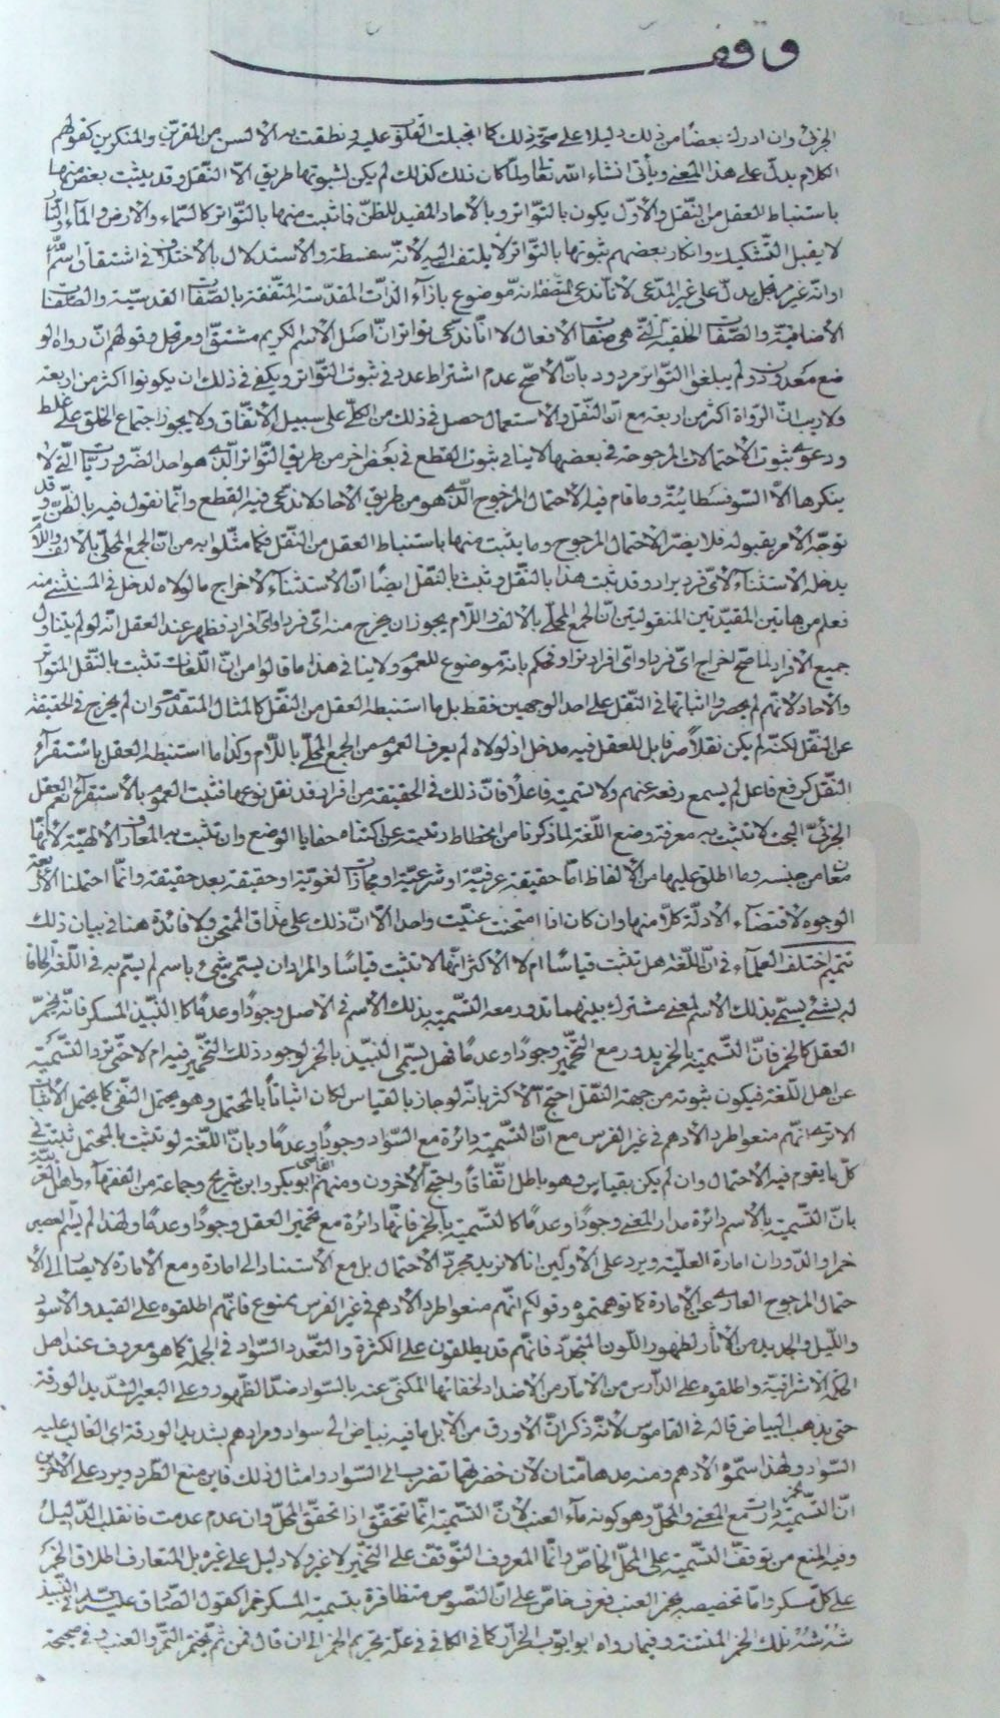 وقف
الجزئي وان ادرك بعضا من ذلك دليلا على صحة ذلك كما انجبلت الفكر عليه ونطقت به الألسن من المقرين والمنكرين كقولهم
الكلام يدل على هذا المعنى ويأتي انشاء الله تعالى ولما كان ذلك كذلك لم يكن لثبوتها طريق الا النقل وقد يثبت بعض منها
باستنباط العقل من النقل والأول يكون بالتواتر وبالآحاد المفيد للظن فما ثبت منها بالتواتر كالسماء والارض والماء والنار
لا يقبل التشكيك وانكار بعضهم ثبوتها بالتواتر لا يلتفت اليه لانه سفسطة والاستدلال بالاختلاف في اشتقاق اسم الله
او انه غير مرتجل يدل على غير المدعى لأنا ندعي انه موضوع بازاء الذات المقدسة المتصفة بالصفات القدسية والصفات
الاضافية والصفات الخلقية التي هي صفات الافعال لا انا ندعي تواتر ان اصل الاسم الكريم مشتق او مرتجل وقولهم ان رواة الو
ضع معدودون ولم يبلغوا التواتر مردود بان الاصح عدم اشتراط عدد في ثبوت التواتر ويكفي في ذلك ان يكونوا اكثر من اربعة
ولا ريب ان الرواة اكثر من اربعة مع ان النقل والاستعمال حصل في ذلك من الكل على سبيل الاتفاق ولا يجوز اجتماع الخلق على غلط
ودعوى ثبوت الاحتمالات المرجوحة في بعضها لا ينافي ثبوت القطع في بعض اخر من طريق التواتر الذي هو احد الضروريات التي لا
ينكرها الا السوفسطائية وما قام فيه الاحتمال المرجوح الذي هو من طريق الآحاد لا ندعي فيه القطع وانما نقول فيه بالظن وقد
توجه الأمر بقبوله فلا يضر الاحتمال المرجوح وما يثبت منها باستنباط العقل من النقل فكما مثلوا به من ان الجمع المحلى بالالف واللام
يدخله الاستثناء لأي فرد يراد وقد ثبت هذا بالنقل وثبت بالنقل ايضا ان الاستثناء لاخراج ما لولاه لدخل في المستثنى منه
فعلم من هاتين المقدمتين المنقولتين ان الجمع المحلى بالالف واللام يجوز ان يخرج منه اي فرد او اي افراد فظهر عند العقل انه لو لم يتناول
جميع الافراد لما صح اخراج اي فرد او اي افراد تراد فحكم بانه موضوع للعموم ولا ينافي هذا ما قالوا من ان اللغات تثبت بالنقل المتواتر
والآحاد لانهم لم يحصروا اثباتها في النقل على احد الوجهين فقط بل ما استنبطه العقل من النقل كالمثال المتقدم وان لم يخرج في الحقيقة
عن النقل لكنه لم يكن نقلا صرفا بل للعقل فيه مدخل اذ لولاه لم يعرف العموم من الجمع المحلى باللام وكذا ما استنبطه العقل باستقراء
النقل كرفع فاعل لم يسمع رفعه عنهم ولا تسميته فاعلا فان ذلك في الحقيقة من افراد قد نقل نوعها فثبت العموم بالاستقراء نعم العقل
الجزئي البحت لا تثبت به معرفة وضع اللغة لما ذكرنا من انحطاط رتبته عن اكتناه خفايا الوضع وان تثبت به المعارف الالهية لانها
معان من جنسه وما اطلق عليها من الالفاظ اما حقيقة عرفية او شرعية او مجازات لغوية او حقيقة بعد حقيقة وانما احتملنا الاربعة
الوجوه لاقتضاء الادلة كلا منها وان كان اذا امتحنت عنيت واحدا الا ان ذلك على مذاق الممتحن ولا فائدة هنا في بيان ذلك
تتميم اختلف العلماء في ان اللغة هل تثبت قياسا ام لا الاكثر انها لا تثبت قياسا والمراد ان يسمى شيء باسم لم يسم به في اللغة الحاقا
له بشيء يسمى بذلك الاسم لمعنى مشترك بينهما تدور معه التسمية بذلك الاسم في الاصل وجودا وعدما كالنبيذ المسكر فانه يخمر
العقل كالخمر فان التسمية بالخمر يدور مع التخمير وجودا وعدما فهل يسمى النبيذ بالخمر لوجود ذلك التخمير فيه ام لا حتى ترد التسمية
عن اهل اللغة فيكون ثبوته من جهة النقل احتج الاكثر بانه لو جاز بالقياس لكان اثباتا بالمحتمل وهو يحتمل النفي كما يحتمل الاثبات
الا ترى انهم منعوا طرد الادهم في غير الفرس مع ان التسمية دائرة مع السواد وجودا وعدما وبان اللغة لو تثبت بالمحتمل ثبتت في
كل ما يقوم فيه الاحتمال وان لم يكن بقياس وهو باطل اتفاقا واحتج الآخرون ومنهم القاضي ابو بكر وابن شريح وجماعة من الفقهاء واهل العربية
بان التسمية بالاسم دائرة مدار المعنى وجودا وعدما كالتسمية بالخمر فانها دائرة مع تخمير العقل وجودا وعدما ولهذا لم يسم العصير
خمرا والدوران امارة العلية ويرد على الاولين انا لا نريد مجرد الاحتمال بل مع الاستناد الى امارة ومع الامارة لا يصار الى الا
حتمال المرجوح العاري عن الامارة كما توهمتموه وقولكم انهم منعوا طرد الادهم في غير الفرس ممنوع فانهم اطلقوه على القيد والاسود
والليل والجديد من الآثار لظهور اللون المتجرد فانهم قد يطلقون على الكثرة والتعدد السواد في الجملة كما هو معروف عند اهل
الحكمة الاشراقية واطلقوه على الدارس من الآثار من الاضداد لخفائها المكنى عنه بالسواد ضد الظهور وعلى البعير الشديد الورقة
حتى يذهب البياض قاله في القاموس لانه ذكر ان الاورق من الابل ما فيه بياض الى سواد ومرادهم بشديد الورقة اي الغالب عليه
السواد ولهذا سموه الادهم ومنه مدهامتان لان خضرتهما تضرب الى السواد وامثال ذلك فاين منع الطرد ويرد على الآخرين
ان التسمية دارت مع المعنى والمحل وهو كونه ماء العنب لان التسمية انما تتحقق اذا تحقق المحل وان عدم عدمت فانقلب الدليل
وفيه المنع من توقف التسمية على المحل الخاص وانما المعروف التوقف على التخمير لا غير ولا دليل على غيره بل المتعارف اطلاق الخمر
على كل مسكر واما تخصيصه بخمر العنب فعرف خاص على ان النصوص متظافرة بتسمية المسكر خمرا كقول الصادق عليه السلام في النبيذ
شه شه تلك الخمر المنتنة وفيما رواه ابو ايوب الخزاز كما في الكافي في علة تحريم الخمر الى ان قال فمن ثم يختمر التمر والعنب وفي صحيحة